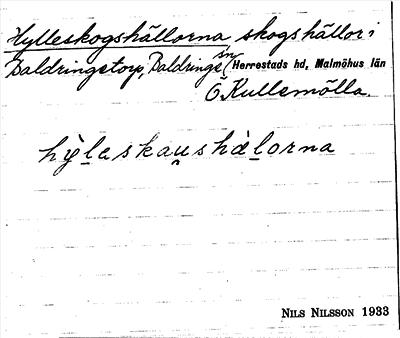 Hylleskogshällorna skogshällor i
Baldringetorp, Baldringe sn, Herrestads hd, Malmöhus län
Ö. Kullemölla
hỳleskau̯shàlorna
NILS NILSSON 1933